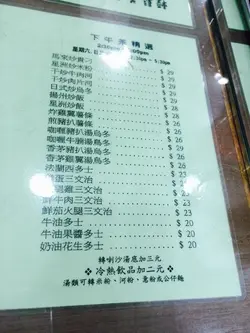 下午茶精選
星洲炒米粉 $ 29
干炒牛肉河 $ 29
干炒肉片河 $ 29
日式炒烏冬 $ 29
揚州炒飯 $ 28
星洲炒飯 $ 28
炸雞翼薯條 $ 28
煎豬扒薯條 $ 28
咖喱豬扒湯烏冬 $ 26
咖喱牛腩湯烏冬 $ 26
香茅豬扒湯烏冬 $ 26
香茅雞翼湯烏冬 $ 26
法蘭西多士 $ 23
三文治 $ 23
三文治 $ 23
牛肉三文治 $ 23
鮮茄火腿三文治 $ 23
牛油多士 $ 20
牛油果醬多士 $ 20
奶油花生多士 $ 20
轉喇沙湯底加三元
❖ 冷熱飲品加二元 ❖
湯類可轉米粉、河粉、意粉或公仔麵